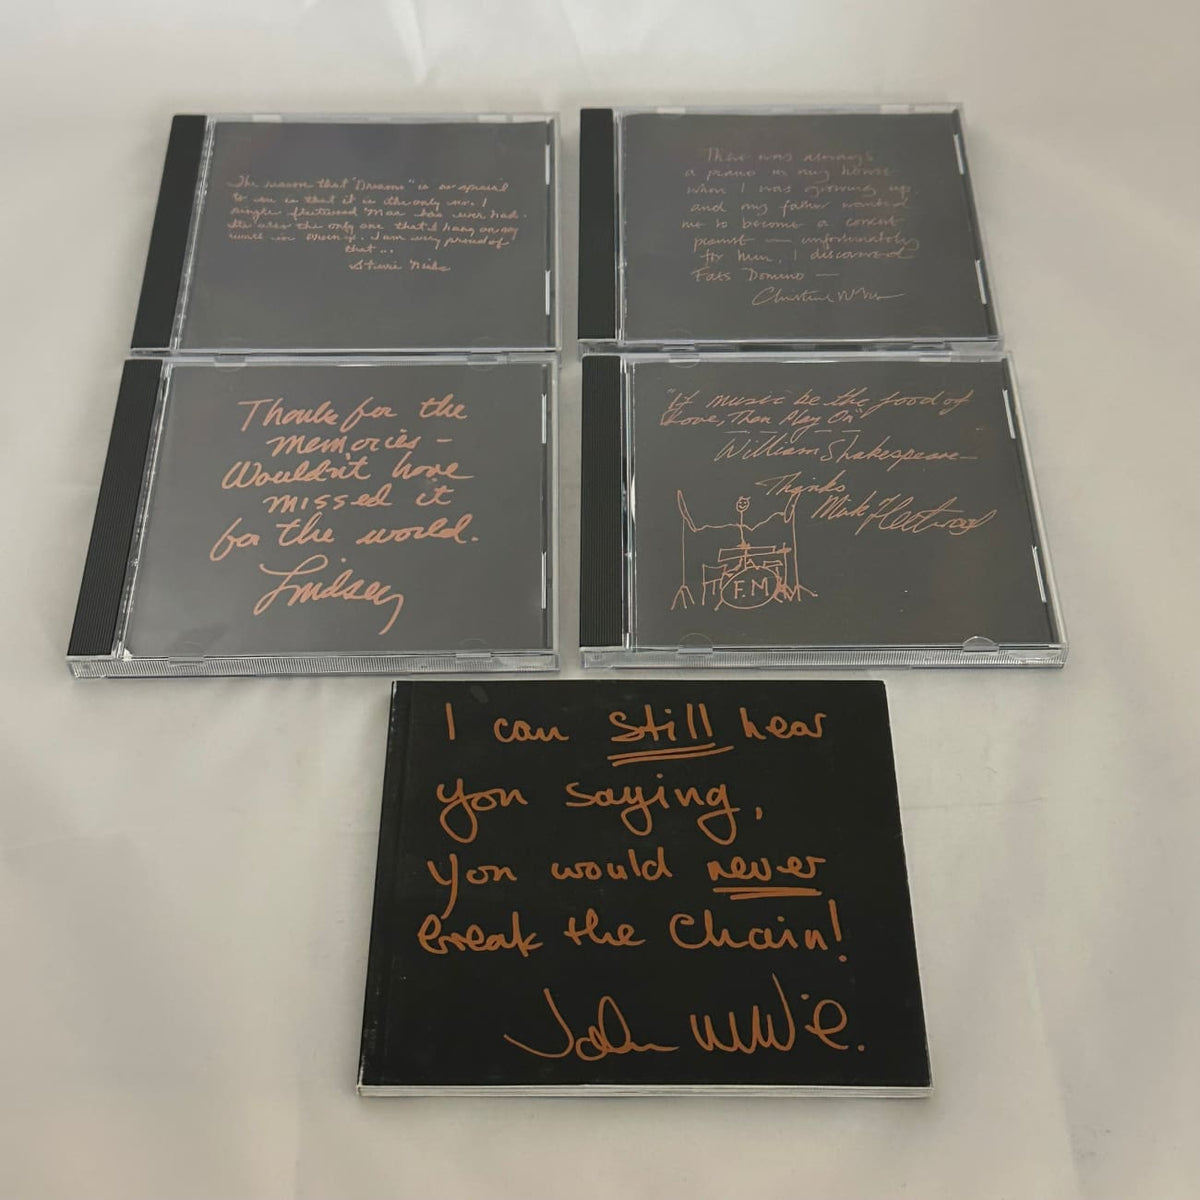 The reason that "Dreams" is so special
to me is that it is the only no. 1
single Fleetwood Mac has ever had.
Its also the only one that I hang on my
walls in every . I am very proud of
that...
Stevie Nicks
There was always
a piano in my house
when I was growing up.
and my father wanted
me to become a concert
pianist — unfortunately
for him, I discovered
Fats Domino —
Christine McVie
Thanks for the
memories —
Wouldn't have
missed it
for the world.
Lindsey
"If music be the food of
Love, Then Play On"
William Shakespeare
Thanks
Mick Fleetwood
F.M
I can still hear
you saying,
you would never
break the Chain!
John McVie.